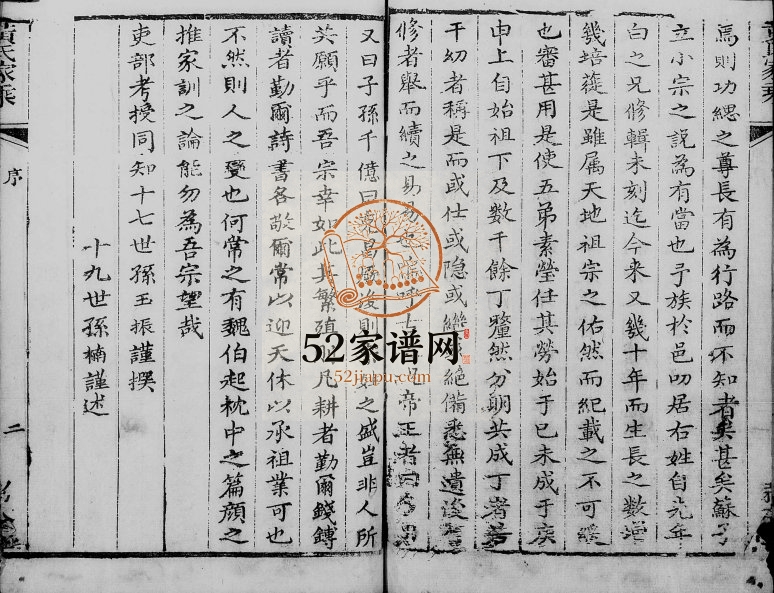 焉則功緦之尊長有為行路而不知者矣甚矣蘇子
立小宗之說為有當也予族於邑叨居右姓自先年
白之兄修輯未刻迄今來又幾十年而生長之數增
幾培蓰是雖属天地祖宗之佑然而紀載之不可緩
也審甚用是使五弟素瑩任其勞始于巳未成于庚
申上自始祖下及数千餘丁釐然分明共成丁者若
干幼者稱是而或仕或隐或絕備悉無遺後
修者舉而續之易易也嗚呼帝王者
又曰子孫千億曰後則之盛豈非人所
英願乎而吾宗幸如此其繁殖凡耕者勤爾錢鎛
讀者勤爾詩書各敬爾常以迎天休以承祖業可也
不然則人之憂也何常之有魏伯起枕中之篇顔之
推家訓之論能勿為吾宗望哉
吏部考授同知十七世孫玉振謹撰
十九世孫楠謹述
黃氏家乘
序
二
52家谱网
52jiapu.com